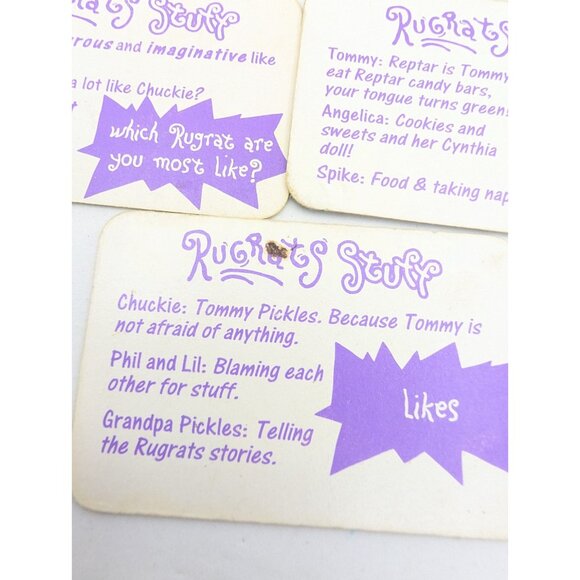 Rugrats Stuff
rous and imaginative like
a lot like Chuckie?
which Rugrat are
you most like?
Rugrats
Tommy: Reptar is Tommy
eat Reptar candy bars,
your tongue turns green!
Angelica: Cookies and
sweets and her Cynthia
doll!
Spike: Food & taking nap
Rugrats Stuff
Chuckie: Tommy Pickles. Because Tommy is
not afraid of anything.
Phil and Lil: Blaming each
other for stuff.
Grandpa Pickles: Telling
the Rugrats stories.
Likes